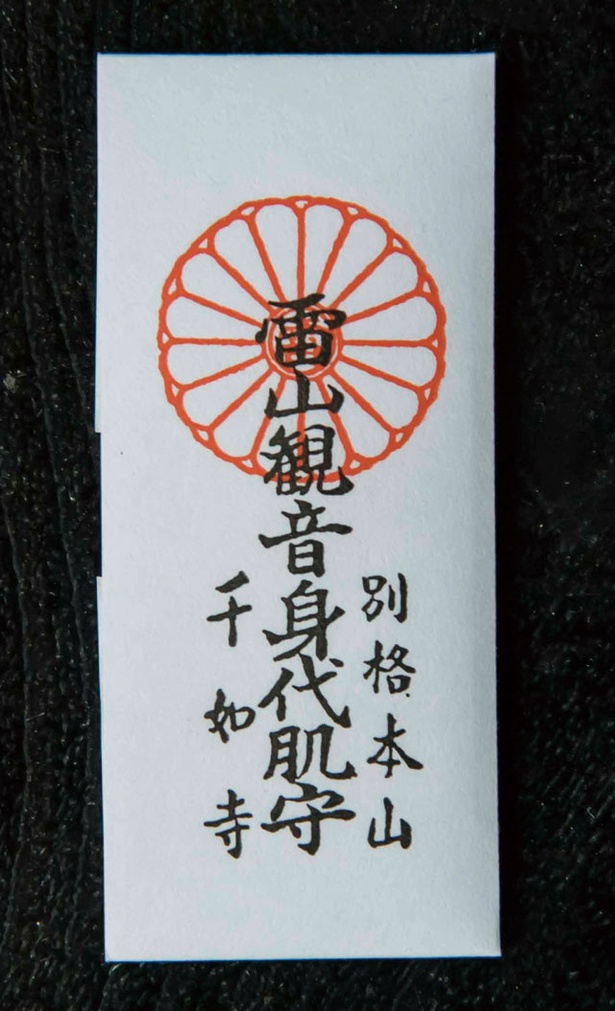 別格本山
雷山観音身代肌守
千如寺